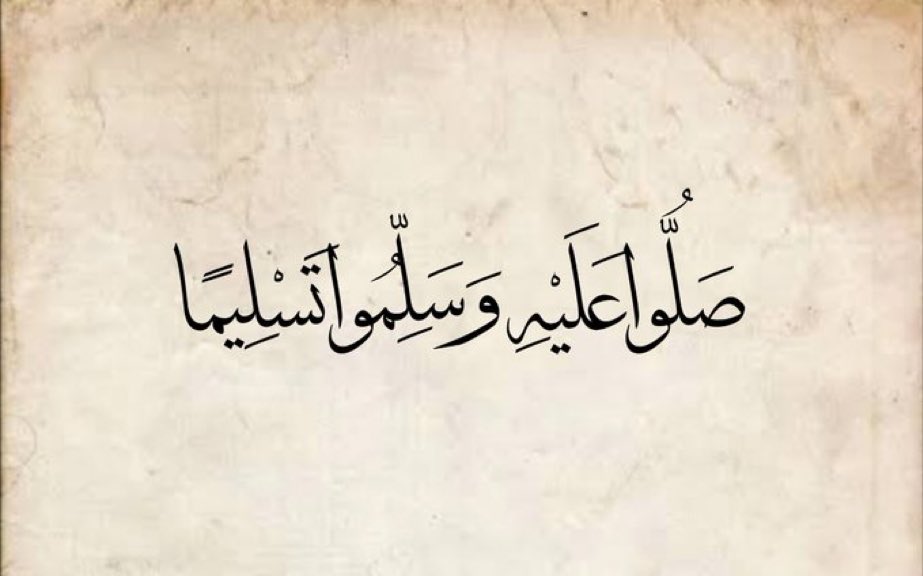 صَلُّوا عَلَيْهِ وَسَلِّمُوا تَسْلِيمًا